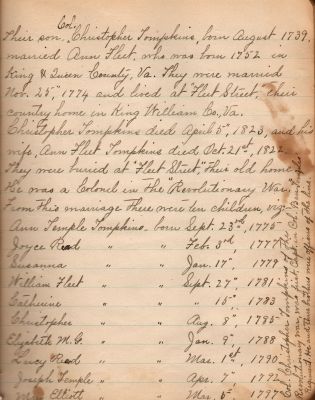 Col.
Their son, Christopher Tompkins, born August 1739,
married Ann Fleet, who was born 1752 in
King & Queen County, Va. They were married
Nov. 25", 1774 and lived at "Fleet Street," their
country home in King William Co., Va.
Christopher Tompkins died April 5", 1823, and his
wife, Ann Fleet Tompkins died Oct. 21st, 1822.
They were buried at "Fleet Street," their old home.
He was a Colonel in the "Revolutionary War."
From this marriage there were ten children, viz:
Ann Temple Tompkins, born Sept. 23rd, 1775
Joyce Read " " Feb. 3rd, 1777
Susanna " " Jan. 17", 1779
William Fleet " " Sept. 27", 1781
Catherine " " " 15" 1783
Christopher " " Aug. 8", 1785
Elizabeth M.G. " " Jan. 9", 1788
Lucy Read " " Mar. 1st, 1790
Joseph Temple " " Apr. 7", 1792
Elliott " " Mar. 5", 1797
Col. Christopher Tompkins of the
Revolutionary war, was Capt.